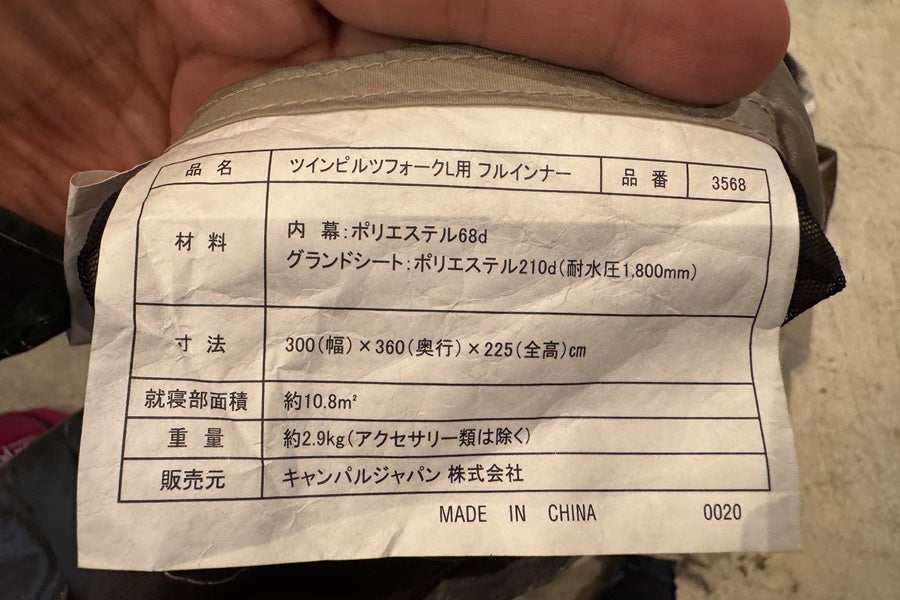 品名 ツインピルツフォークL用 フルインナー 品番 3568
材料 内 幕:ポリエステル68d
グランドシート:ポリエステル210d(耐水圧1,800mm)
寸法 300(幅)×360(奥行)×225(全高)cm
就寝部面積 約10.8m²
重量 約2.9kg(アクセサリー類は除く)
販売元 キャンパルジャパン 株式会社
MADE IN CHINA 0020